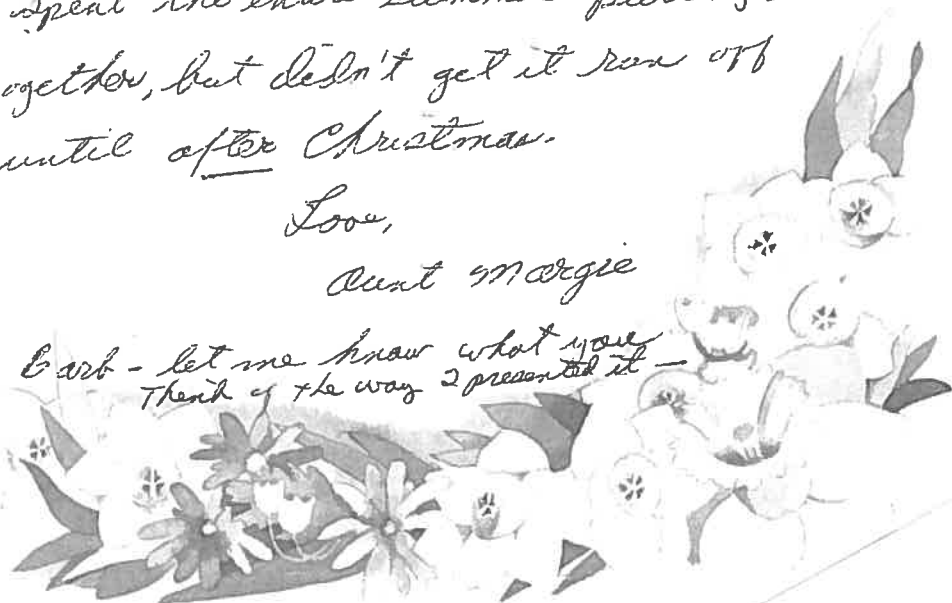 spent the entire summer piecing
together, but didn't get it run off
until after Christmas.
Love,
Aunt Margie
Barb - let me know what you
Think of the way I presented it -